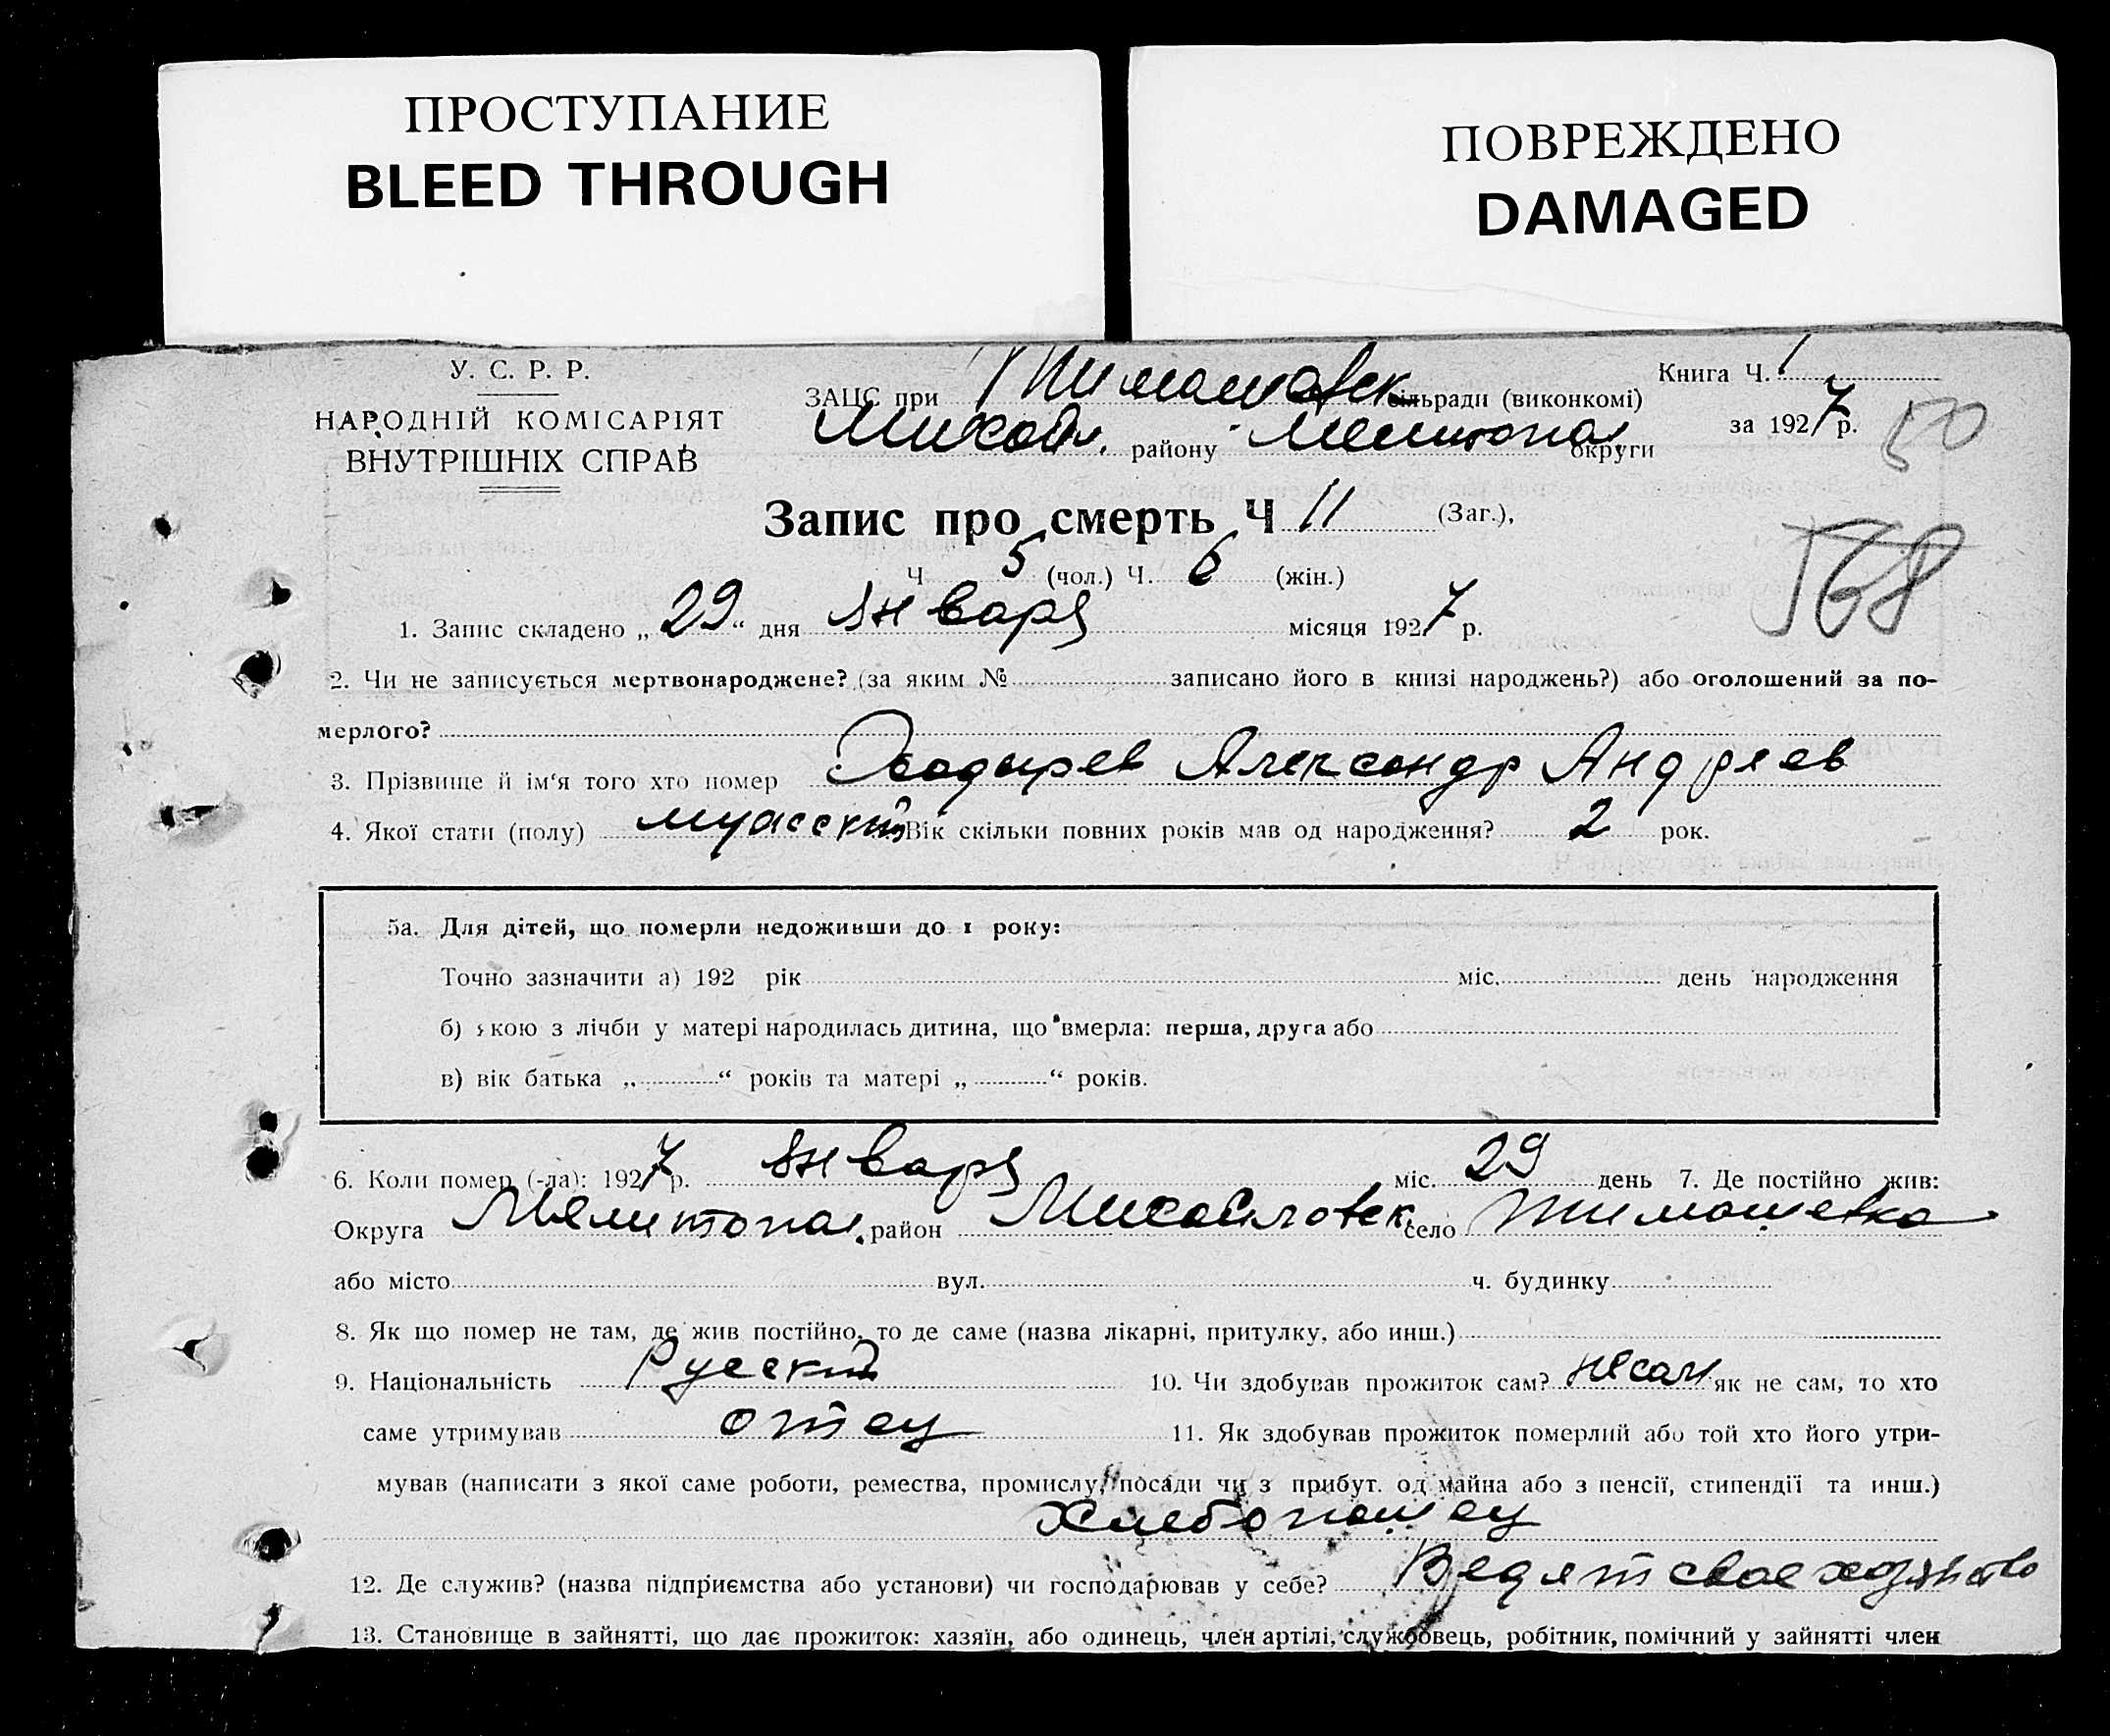 ПРОСТУПАНИЕ
BLEED THROUGH
ПОВРЕЖДЕНО
DAMAGED
У. С. Р. Р.
НАРОДНІЙ КОМІСАРІЯТ
ВНУТРІШНІХ СПРАВ
Книга Ч. 1
за 1927 р.
50
ЗАЦС при Тимашовск сільради (виконкомі)
Михайл. району Мелитопол округи
Запис про смерть Ч 11 (Заг.),
Ч 5 (чол.) Ч. 6 (жін.)
568
1. Запис складено „ 29 “ дня января місяця 1927 р.
2. Чи не записується мертвонароджене? (за яким № записано його в книзі народжень?) або оголошений за по-
мерлого?
3. Прізвище й ім'я того хто помер Александр Андреев
4. Якої стати (полу) мужеский Вік скільки повних років мав од народження? 2 рок.
5а. Для дітей, що померли недоживши до 1 року:
Точно зазначити а) 192 рік міс. день народження
б) якою з лічби у матері народилась дитина, що вмерла: перша, друга або
в) вік батька „ “ років та матері „ “ років.
6. Коли помер (-ла): 1927 р. января міс. 29 день 7. Де постійно жив:
Округа Мелитопол. район Михайловск. село Тимашевка
або місто вул. ч. будинку
8. Як що помер не там, де жив постійно, то де саме (назва лікарні, притулку, або инш.)
9. Національність Русский 10. Чи здобував прожиток сам? несам як не сам, то хто
саме утримував отец 11. Як здобував прожиток померлий або той хто його утри-
мував (написати з якої саме роботи, ремества, промислу, посади чи з прибут. од майна або з пенсії, стипендії та инш.)
Хлебопашец
12. Де служив? (назва підприємства або установи) чи господарював у себе? Ведят свое хозяйство
13. Становище в зайнятті, що дає прожиток: хазяїн, або одинець, член артілі, службовець, робітник, помічний у зайнятті член